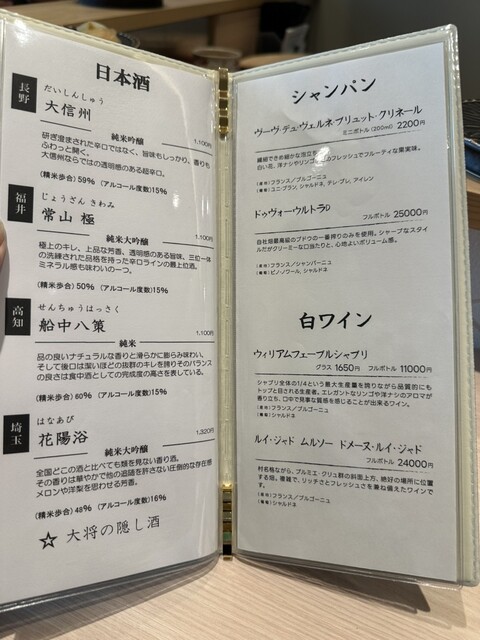 日本酒
長野
だいしんしゅう
大信州
純米吟醸
1,100円
研ぎ澄まされた辛口ではなく、旨味もしっかり、香りも
ふわっと開く。
大信州ならではの透明感のある超辛口。
(精米歩合)59% (アルコール度数)15%
福井
じょうざん きわみ
常山 極
純米大吟醸
1,100円
極上のキレ、上品な芳香、透明感のある旨味、三位一体
の洗練された品格を持った辛口ラインの最上位酒。
ミネラル感も味わいの一つ。
(精米歩合)50% (アルコール度数)15%
高知
せんちゅうはっさく
船中八策
純米
1,100円
品の良いナチュラルな香りと滑らかに膨らみ味わい。
そして後口は潔いほどの抜群のキレを誇りそのバランス
の良さは食中酒としての完成度の高さを表している。
(精米歩合)60% (アルコール度数)15%
埼玉
はなあび
花陽浴
純米大吟醸
1,320円
全国どこの酒と比べても類を見ない香り酒。
その香りは華やかで他の追随を許さない圧倒的な存在感
メロンや洋梨を思わせる芳香。
(精米歩合)48% (アルコール度数)16%
☆ 大将の隠し酒
シャンパン
ヴーヴ・デュ・ヴェルネ・ブリュット・クリネール
ミニボトル(200ml) 2200円
繊細できめ細かな泡立ち
白い花、洋ナシやリンゴ のフレッシュでフルーティな果実味。
(産地)フランス/ブルゴーニュ
(葡萄)ユニ・ブラン、シャルドネ、テレ・ブレ、アイレン
ドゥヴォーウルトラD
フルボトル 25000円
自社畑最高級のブドウの一番搾りのみを使用。シャープなスタイ
ルだがクリーミーな口当たりと、心地よいボリューム感。
(産地)フランス/シャンパーニュ
(葡萄)ピノ・ノワール、シャルドネ
白ワイン
ウィリアムフェーブルシャブリ
グラス 1650円 フルボトル 11000円
シャブリ全体の1/4という最大生産量を誇りながら品質的にも
トップと目される生産者。エレガントなリンゴや洋ナシのアロマが
香り立ち、口中で見事な質感を感じることが出来るワイン。
(産地)フランス/ブルゴーニュ
(葡萄)シャルドネ
ルイ・ジャド ムルソー ドメーヌ・ルイ・ジャド
フルボトル 24000円
村名格ながら、プルミエ・グリュ群の斜面上方、絶好の場所に位置
する畑。複雑で、リッチさとフレッシュさを兼ね備えたワインで
す。
(産地)フランス/ブルゴーニュ
(葡萄)シャルドネ